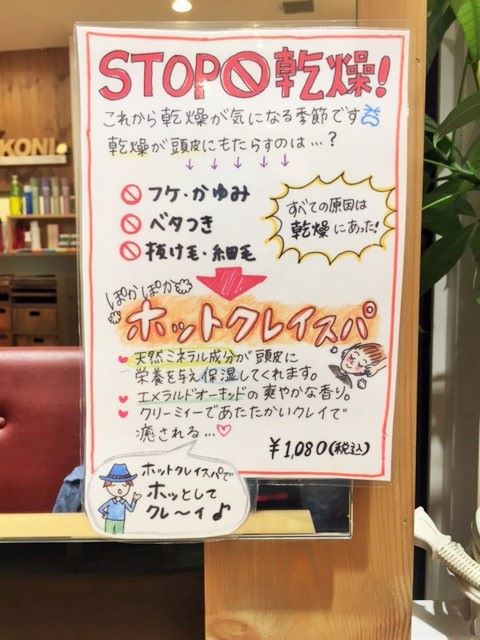 STOP 乾燥!
これから乾燥が気になる季節です
乾燥が頭皮にもたらすのは…?
フケ・かゆみ
ベタつき
抜け毛・細毛
すべての原因は
乾燥にあった!
ぽかぽか
ホットクレイスパ
天然ミネラル成分が頭皮に
栄養を与え保湿してくれます。
エメラルドオーキッドの爽やかな香り。
クリーミィーであたたかいクレイで
癒される…♡
¥1,080(税込)
ホットクレイスパで
ホッとして
クレ〜イ♪
KONI